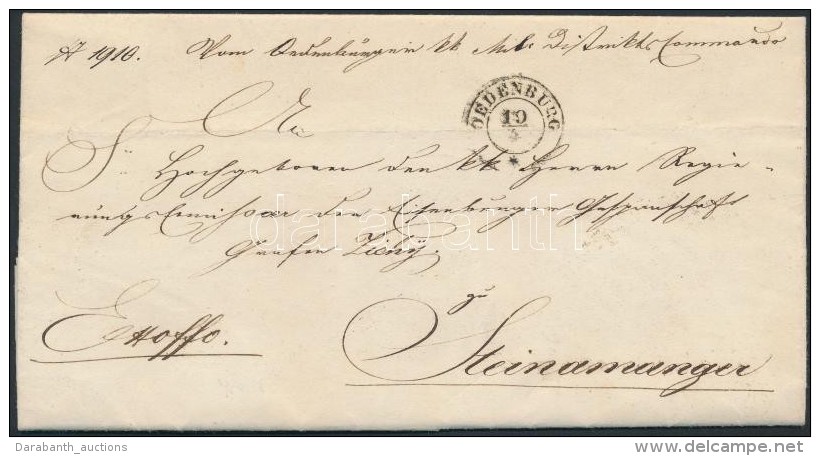 № 1910. Vom Oedenburger kk Mil: Distrikts Commando
OEDENBURG
19
An
Sr Hochgeboren den kk Herrn Regie-
rungs Comissaer der Eisenburger Gespanschaft
Grafen Zichy
zu
Ex offo.
Steinamanger
darabanth
Darabanth_auctions
www.delcampe.net